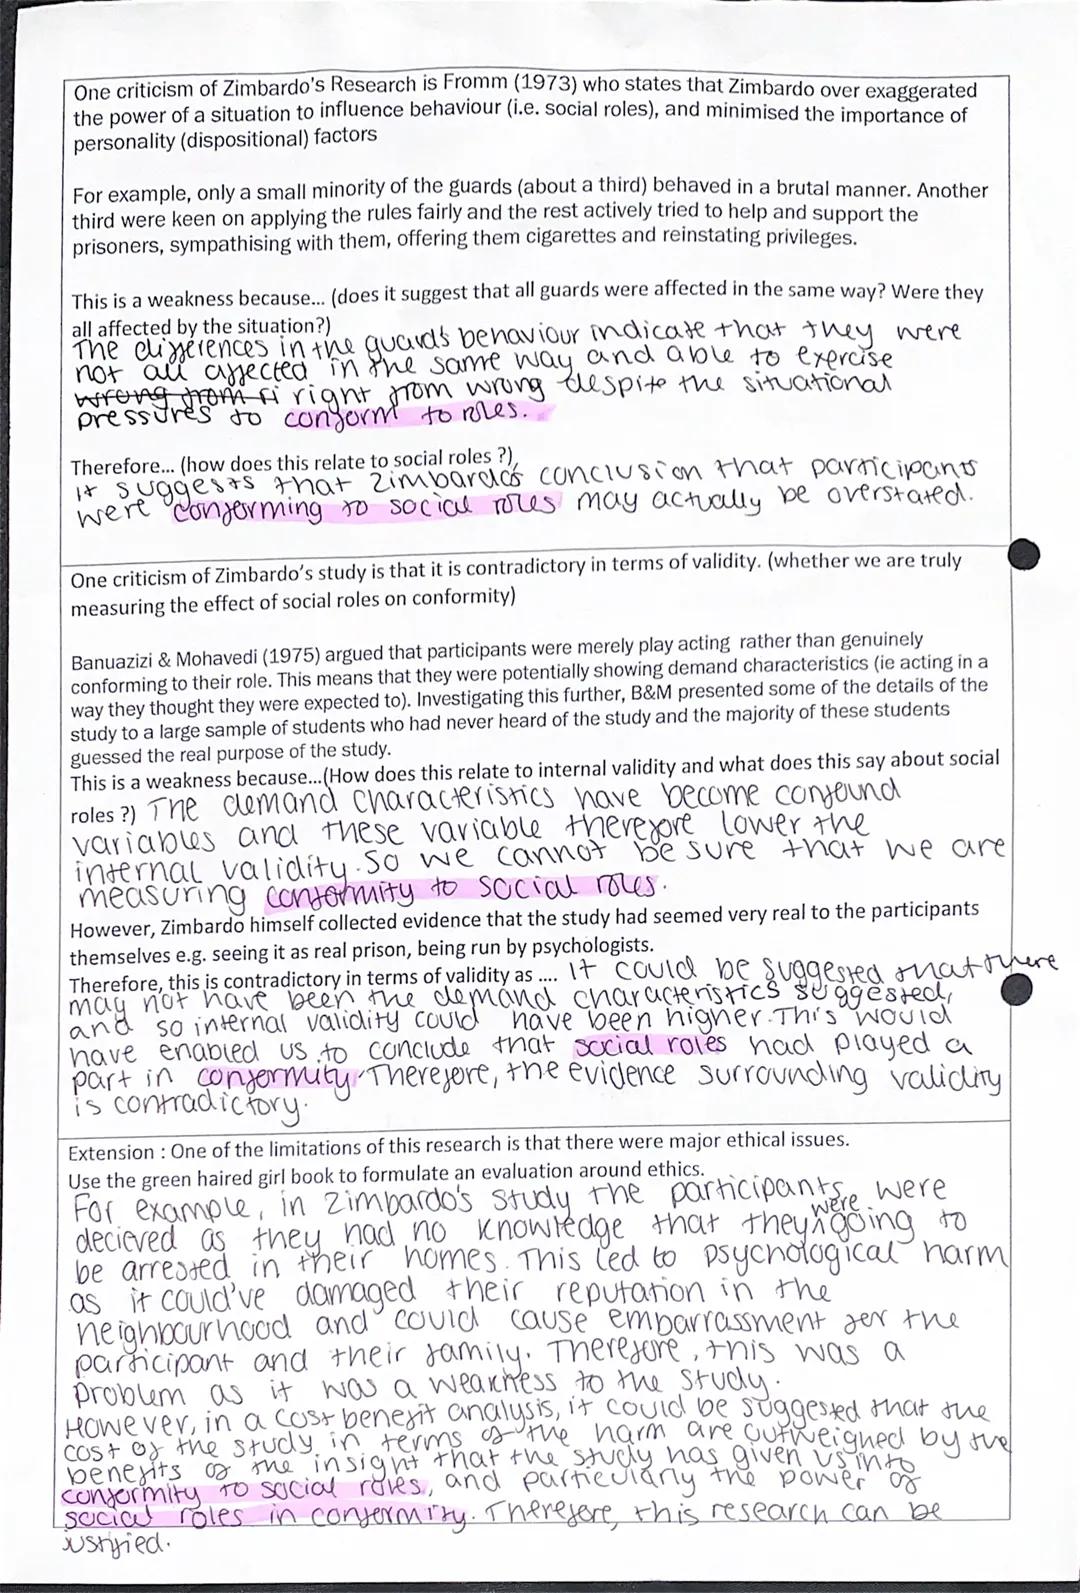 One criticism of Zimbardo's Research is Fromm (1973) who states that Zimbardo over exaggerated
the power of a situation to influence behaviour (i.e. social roles), and minimised the importance of
personality (dispositional) factors
For example, only a small minority of the guards (about a third) behaved in a brutal manner. Another
third were keen on applying the rules fairly and the rest actively tried to help and support the
prisoners, sympathising with them, offering them cigarettes and reinstating privileges.
This is a weakness because... (does it suggest that all guards were affected in the same way? Were they
all affected by the situation?)
The differences in the guards behaviour indicate that they were
not all affected in the same way and able to exercise
wrong from ri right from wrong despite the situational
pressures to conform to roles.
Therefore... (how does this relate to social roles ?)
it suggests that Zimbardos conclusion that participants
were conforming to social roles may actually be overstated.
One criticism of Zimbardo's study is that it is contradictory in terms of validity. (whether we are truly
measuring the effect of social roles on conformity)
Banuazizi & Mohavedi (1975) argued that participants were merely play acting rather than genuinely
conforming to their role. This means that they were potentially showing demand characteristics (ie acting in a
way they thought they were expected to). Investigating this further, B&M presented some of the details of the
study to a large sample of students who had never heard of the study and the majority of these students
guessed the real purpose of the study.
This is a weakness because...(How does this relate to internal validity and what does this say about social
roles ?) The demand characteristics have become confound
variables and these variable therefore lower the
internal validity. So we cannot be sure that we are
measuring conformity to social roles.
However, Zimbardo himself collected evidence that the study had seemed very real to the participants
themselves e.g. seeing it as real prison, being run by psychologists.
Therefore, this is contradictory in terms of validity as .... It could be suggested that there
may not have been the demand characteristics suggested,
and so internal validity could have been higher. This would
have enabled us to conclude that social roles had played a
part in conformity. Therefore, the evidence surrounding validity
is contradictory.
Extension : One of the limitations of this research is that there were major ethical issues.
Use the green haired girl book to formulate an evaluation around ethics.
For example, in Zimbardo's study the participants were
decieved as they had no knowledge that they were going to
be arrested in their homes. This led to psychological harm
as it could've damaged their reputation in the
neighbourhood and could cause embarrassment for the
participant and their family. Therefore, this was a
problem as it was a weakness to the study.
However, in a cost benefit analysis, it could be suggested that the
cost of the study in terms of the harm are outweighed by the
benefits of the insight that the study has given us into
conformity to social roles, and particularly the power of
social roles in conformity. Therefore, this research can be
justified.